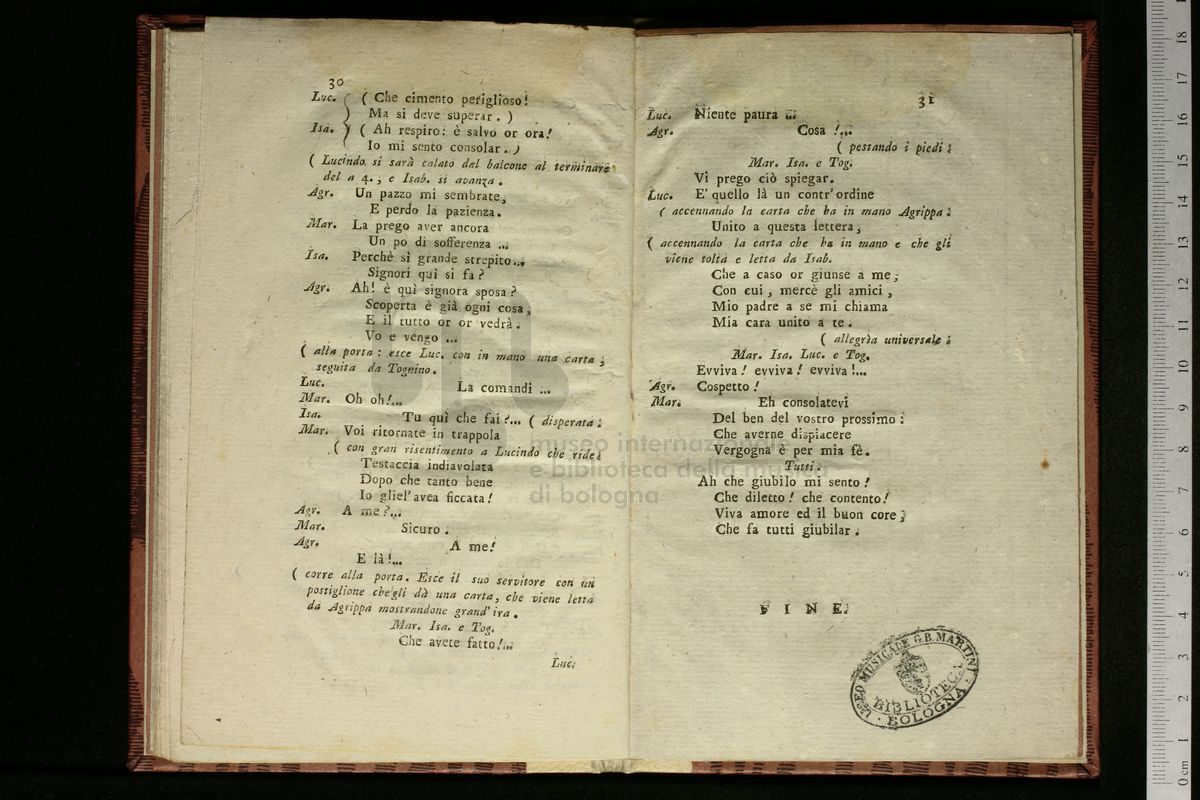 30
Luc. ( Che cimento periglioso!
Ma si deve superar. )
Isa. ( Ah respiro: è salvo or ora!
Io mi sento consolar. )
( Lucindo si sarà calato dal balcone al terminare
del a 4., e Isab. si avanza.
Agr. Un pazzo mi sembrate,
E perdo la pazienza.
Mar. La prego aver ancora
Un po di sofferenza ...
Isa. Perchè sì grande strepito...
Signori quì si fa?
Agr. Ah! è quì signora sposa?
Scoperta è già ogni cosa,
E il tutto or or vedrà.
Vo e vengo ...
( alla porta: esce Luc. con in mano una carta,
seguita da Tognino.
Luc. La comandi ...
Mar. Oh oh!...
Isa. Tu quì che fai?... ( disperata:
Mar. Voi ritornate in trappola
( con gran risentimento a Lucindo che ride:
Testaccia indiavolata
Dopo che tanto bene
Io gliel'avea ficcata!
Agr. A me?...
Mar. Sicuro.
Agr. A me!
E là!...
( corre alla porta. Esce il suo servitore con un
postiglione che gli dà una carta, che viene letta
da Agrippa mostrandone grand'ira.
Mar. Isa. e Tog.
Che avete fatto!...
Luc.
31
Luc. Niente paura ...
Agr. Cosa!...
( pestando i piedi:
Mar. Isa. e Tog.
Vi prego ciò spiegar.
Luc. E' quello là un contr'ordine
( accennando la carta che ha in mano Agrippa:
Unito a questa lettera,
( accennando la carta che ha in mano e che gli
viene tolta e letta da Isab.
Che a caso or giunse a me;
Con cui, mercè gli amici,
Mio padre a se mi chiama
Mia cara unito a te.
( allegrìa universale:
Mar. Isa. Luc. e Tog.
Evviva! evviva! evviva!...
Agr. Cospetto!
Mar. Eh consolatevi
Del ben del vostro prossimo:
Che averne dispiacere
Vergogna è per mia fè.
Tutti.
Ah che giubilo mi sento!
Che diletto! che contento!
Viva amore ed il buon core,
Che fa tutti giubilar.
FINE.
LICEO MUSICALE G.B. MARTINI
BIBLIOTECA
BOLOGNA
museo internazionale
e biblioteca della musica
di bologna
0 cm 1 2 3 4 5 6 7 8 9 10 11 12 13 14 15 16 17 18